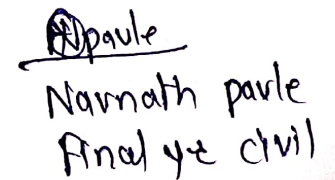 Npavle
Navnath pavle
Final ye civil